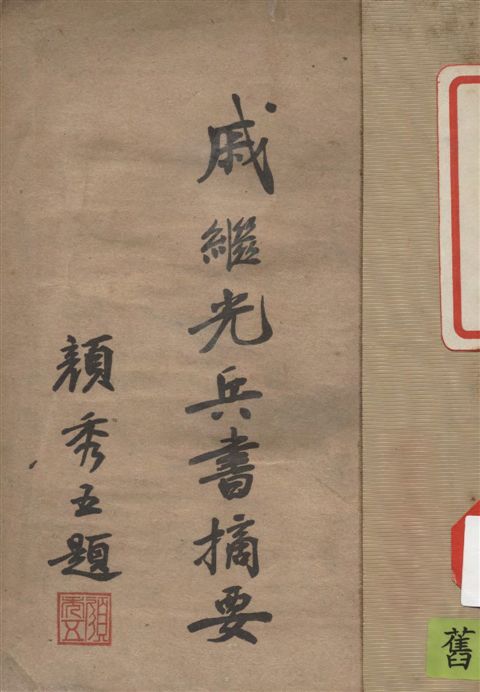 戚繼光兵書摘要
顏秀五題
顏秀五
舊